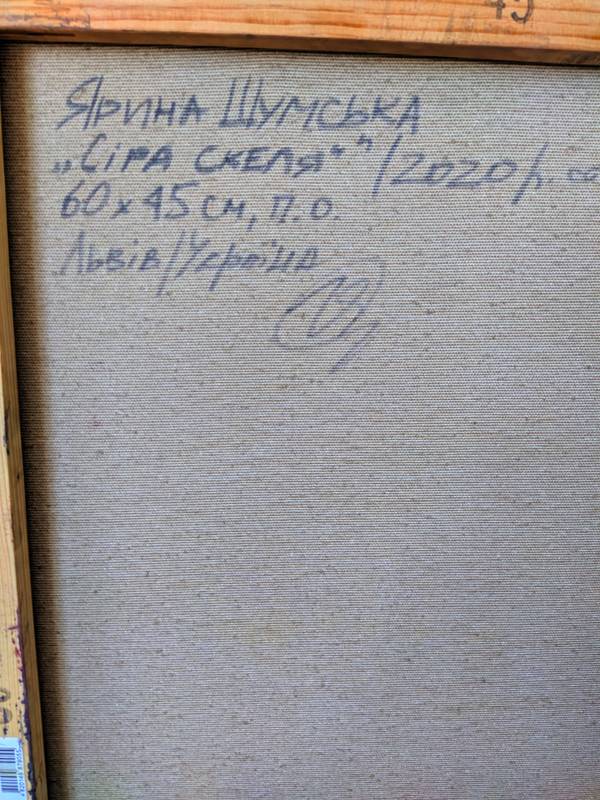 45
Ярина Шумська
„Сіра скеля" / 2020 р.
60 x 45 см, п.о.
Львів/Україна